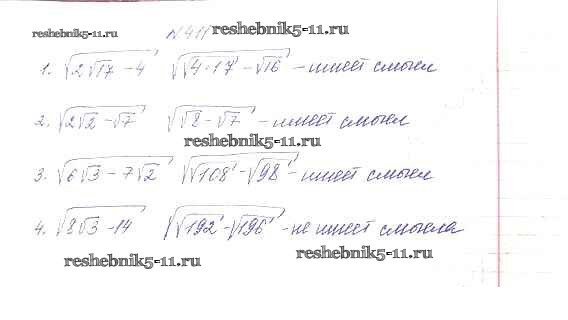 reshebnik5-11.ru №411 reshebnik5-11.ru
1. √(2√17 - 4) √(√(4·17) - √16) - имеет смысл
2. √(2√2 - √7) √(√8 - √7) - имеет смысл
reshebnik5-11.ru
3. √(6√3 - 7√2) √(√108 - √98) - имеет смысл
4. √(8√3 - 14) √(√192 - √196) - не имеет смысла
reshebnik5-11.ru reshebnik5-11.ru